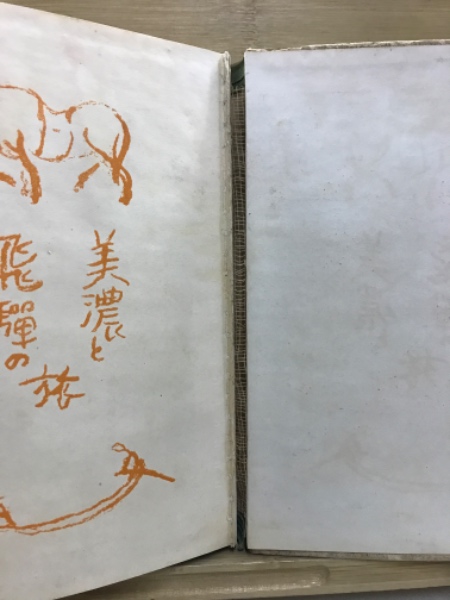 美濃と
飛驒の
旅